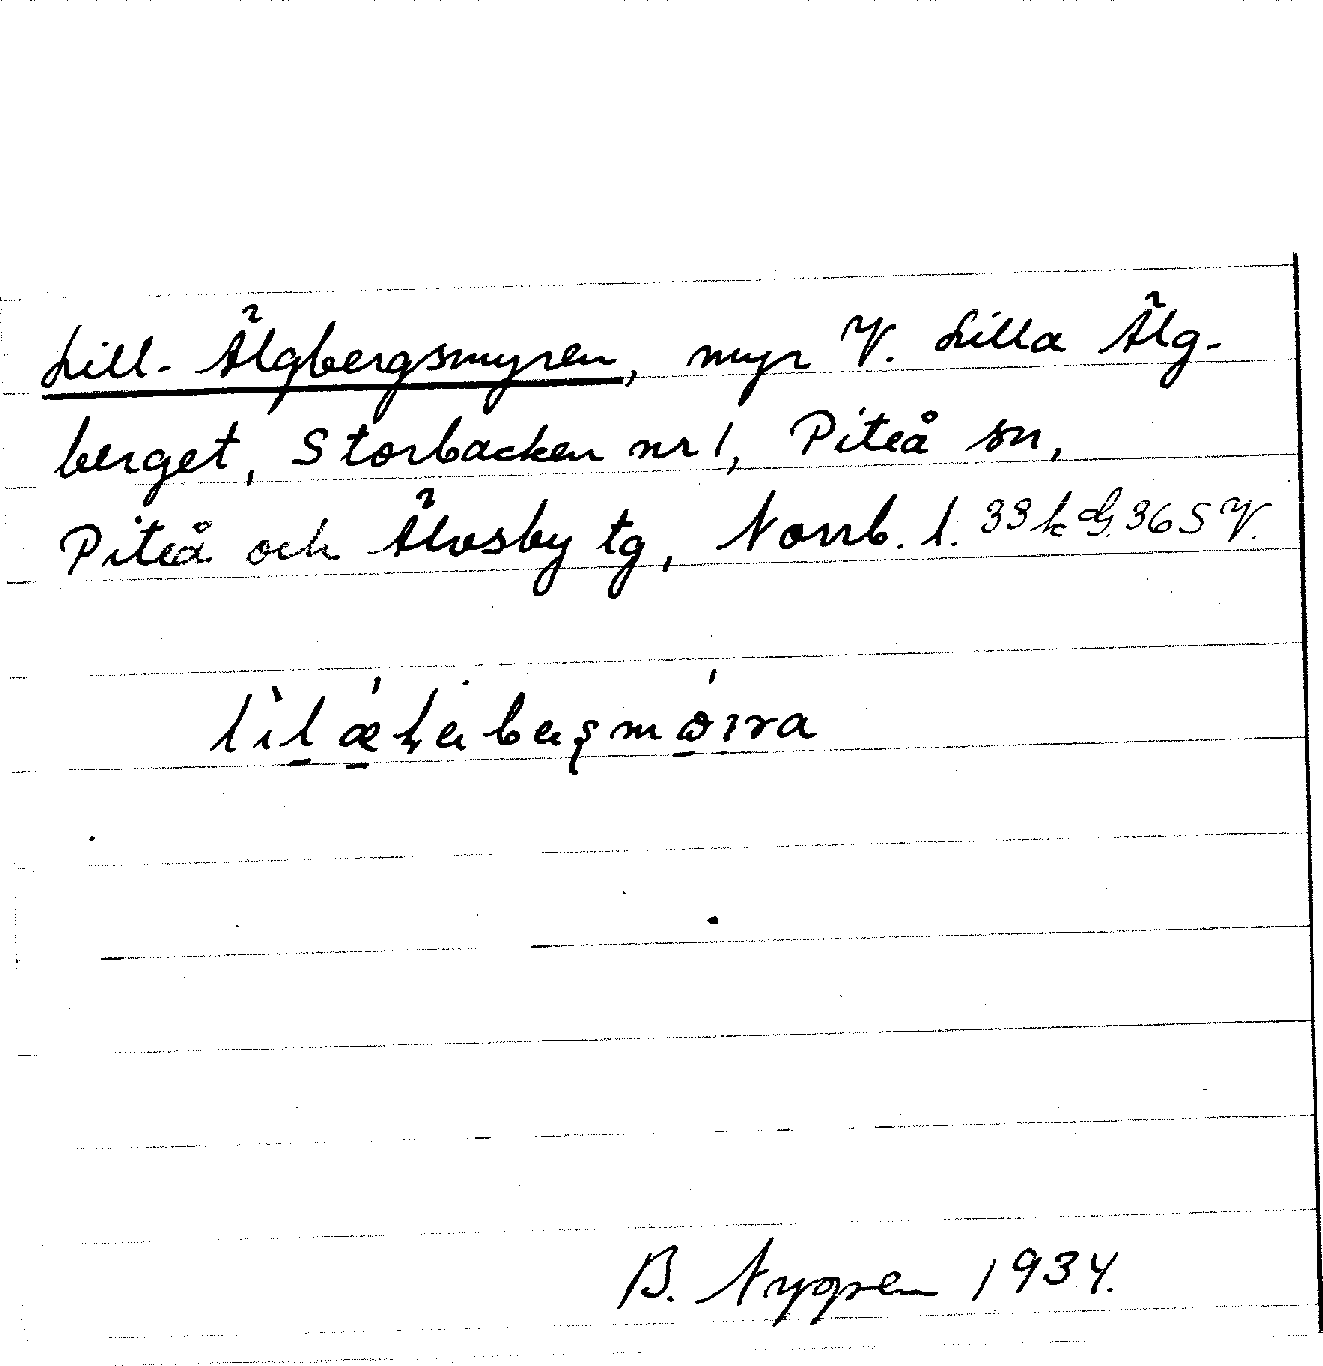 Lill-Älgbergsmyren, myr V. Lilla Älg-
berget, Storbacken nr 1, Piteå sn,
Piteå och Älvsby tg, Norrb. l. 33 k G. 36 S V.
B. Nygren 1934.